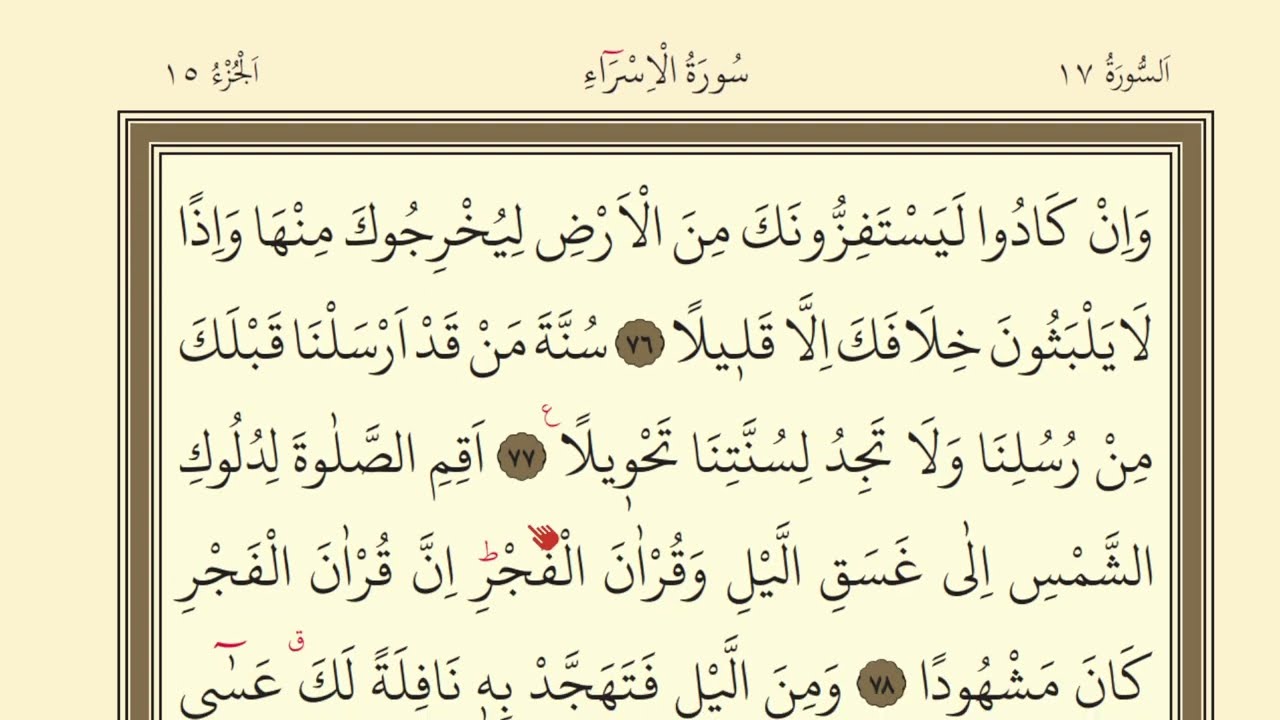 اَلسُّورَةُ ١٧ سُورَةُ الْاِسْرَٓاءِ اَلْجُزْءُ ١٥
وَاِنْ كَادُوا لَيَسْتَفِزُّونَكَ مِنَ الْاَرْضِ لِيُخْرِجُوكَ مِنْهَا وَاِذًا
لَا يَلْبَثُونَ خِلَافَكَ اِلَّا قَلٖيلًا ٧٦ سُنَّةَ مَنْ قَدْ اَرْسَلْنَا قَبْلَكَ
مِنْ رُسُلِنَا وَلَا تَجِدُ لِسُنَّتِنَا تَحْوٖيلًا ع ٧٧ اَقِمِ الصَّلٰوةَ لِدُلُوكِ
الشَّمْسِ اِلٰى غَسَقِ الَّيْلِ وَقُرْاٰنَ الْفَجْرِ ط اِنَّ قُرْاٰنَ الْفَجْرِ
كَانَ مَشْهُودًا ٧٨ وَمِنَ الَّيْلِ فَتَهَجَّدْ بِهٖ نَافِلَةً لَكَ ق عَسٰٓى